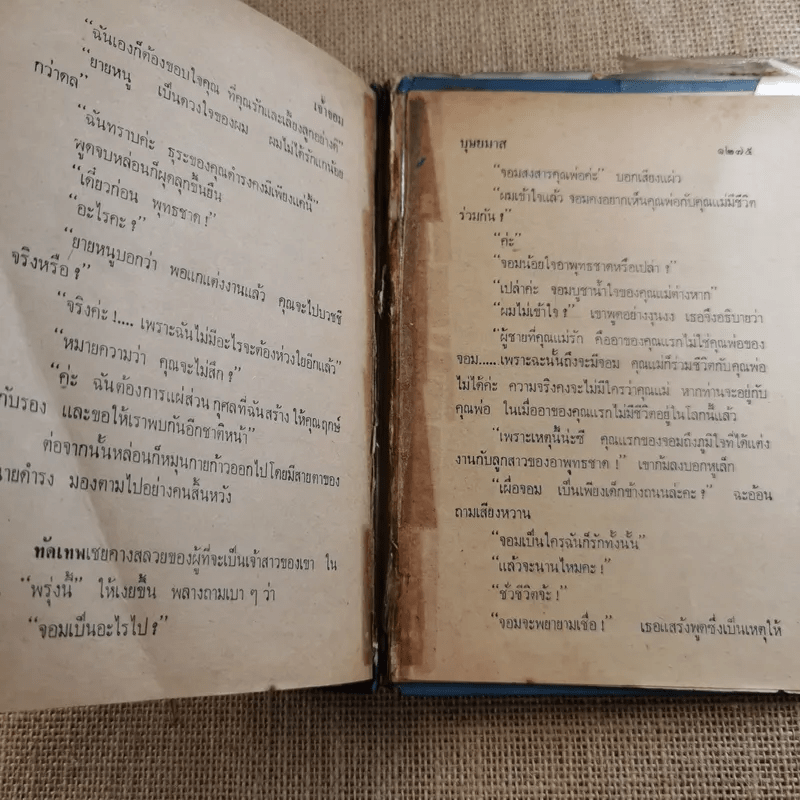 เจ้าจอม
“ฉันเองก็ต้องขอบใจคุณ ที่คุณรักและเลี้ยงลูกอย่างดี”
“ยายหนู เป็นดวงใจของผม ผมไม่ได้รักแกน้อย
กว่าดล”
“ฉันทราบค่ะ ธุระของคุณดำรงคงมีเพียงแค่นี้”
พูดจบหล่อนก็ผุดลุกขึ้นยืน
“เดี๋ยวก่อน พุทธชาด !”
“อะไรคะ ?”
“ยายหนูบอกว่า พอแกแต่งงานแล้ว คุณจะไปบวชชี
จริงหรือ ?”
“จริงค่ะ !.... เพราะฉันไม่มีอะไรจะต้องห่วงใยอีกแล้ว”
“หมายความว่า คุณจะไม่สึก ?”
“ค่ะ ฉันต้องการแผ่ส่วนกุศลที่ฉันสร้าง ให้คุณฤกษ์
กับรอง และขอให้เราพบกันอีกชาติหน้า”
ต่อจากนั้นหล่อนก็หมุนกายก้าวออกไป โดยมีสายตาของ
นายดำรง มองตามไปอย่างคนสิ้นหวัง
ทัดเทพเชยคางสลวยของผู้ที่จะเป็นเจ้าสาวของเขา ใน
“พรุ่งนี้” ให้เงยขึ้น พลางถามเบา ๆ ว่า
“จอมเป็นอะไรไป ?”
บุษยมาส
๑๒๗๕
“จอมสงสารคุณพ่อค่ะ” บอกเสียงแผ่ว
“ผมเข้าใจแล้ว จอมคงอยากเห็นคุณพ่อกับคุณแม่มีชีวิต
ร่วมกัน ?”
“ค่ะ”
“จอมน้อยใจอาพุทธชาดหรือเปล่า ?”
“เปล่าค่ะ จอมบูชาน้ำใจของคุณแม่ต่างหาก”
“ผมไม่เข้าใจ !” เขาพูดอย่างงุนงง เธอจึงอธิบายว่า
“ผู้ชายที่คุณแม่รัก คืออาของคุณแรกไม่ใช่คุณพ่อของ
จอม.....เพราะฉะนั้นถึงจะมีจอม คุณแม่ก็ร่วมชีวิตกับคุณพ่อ
ไม่ได้ค่ะ ความจริงคงจะไม่มีใครว่าคุณแม่ หากท่านจะอยู่กับ
คุณพ่อ ในเมื่ออาของคุณแรกไม่มีชีวิตอยู่ในโลกนี้แล้ว
“เพราะเหตุนี้น่ะซี คุณแรกของจอมถึงภูมิใจที่ได้แต่ง
งานกับลูกสาวของอาพุทธชาด !” เขาก้มลงบอกหูเล็ก
“เผื่อจอม เป็นเพียงเด็กข้างถนนล่ะคะ ?” ฉะอ้อน
ถามเสียงหวาน
“จอมเป็นใครฉันก็รักทั้งนั้น”
“แล้วจะนานไหมคะ !”
“ชั่วชีวิตจ้ะ !”
“จอมจะพยายามเชื่อ !” เธอแสร้งพูดซึ่งเป็นเหตุให้